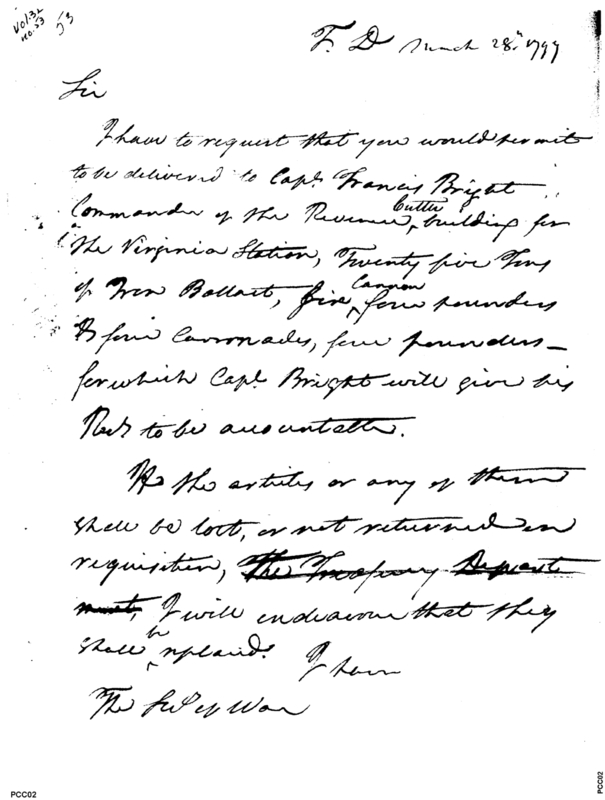 Vol. 32
No. 23
T. D March 28th 1797
Sir
I have to request that you would permit
to be delivered to Capt. Francis Bright
Commander of the Revenue Cutter, building for
the Virginia Station, Twenty five Tons
of Iron Ballast, five Cannon, four pounders
& four Carronades, four pounders —
for which Capt. Bright will give his
Rect. to be accountable.
If the articles or any of them
shall be lost, or not returned on
requisition, The Treasury Depart
ment, I will endeavour that they
shall be replaced. I have
The Secy of War
PCC02
PCC02